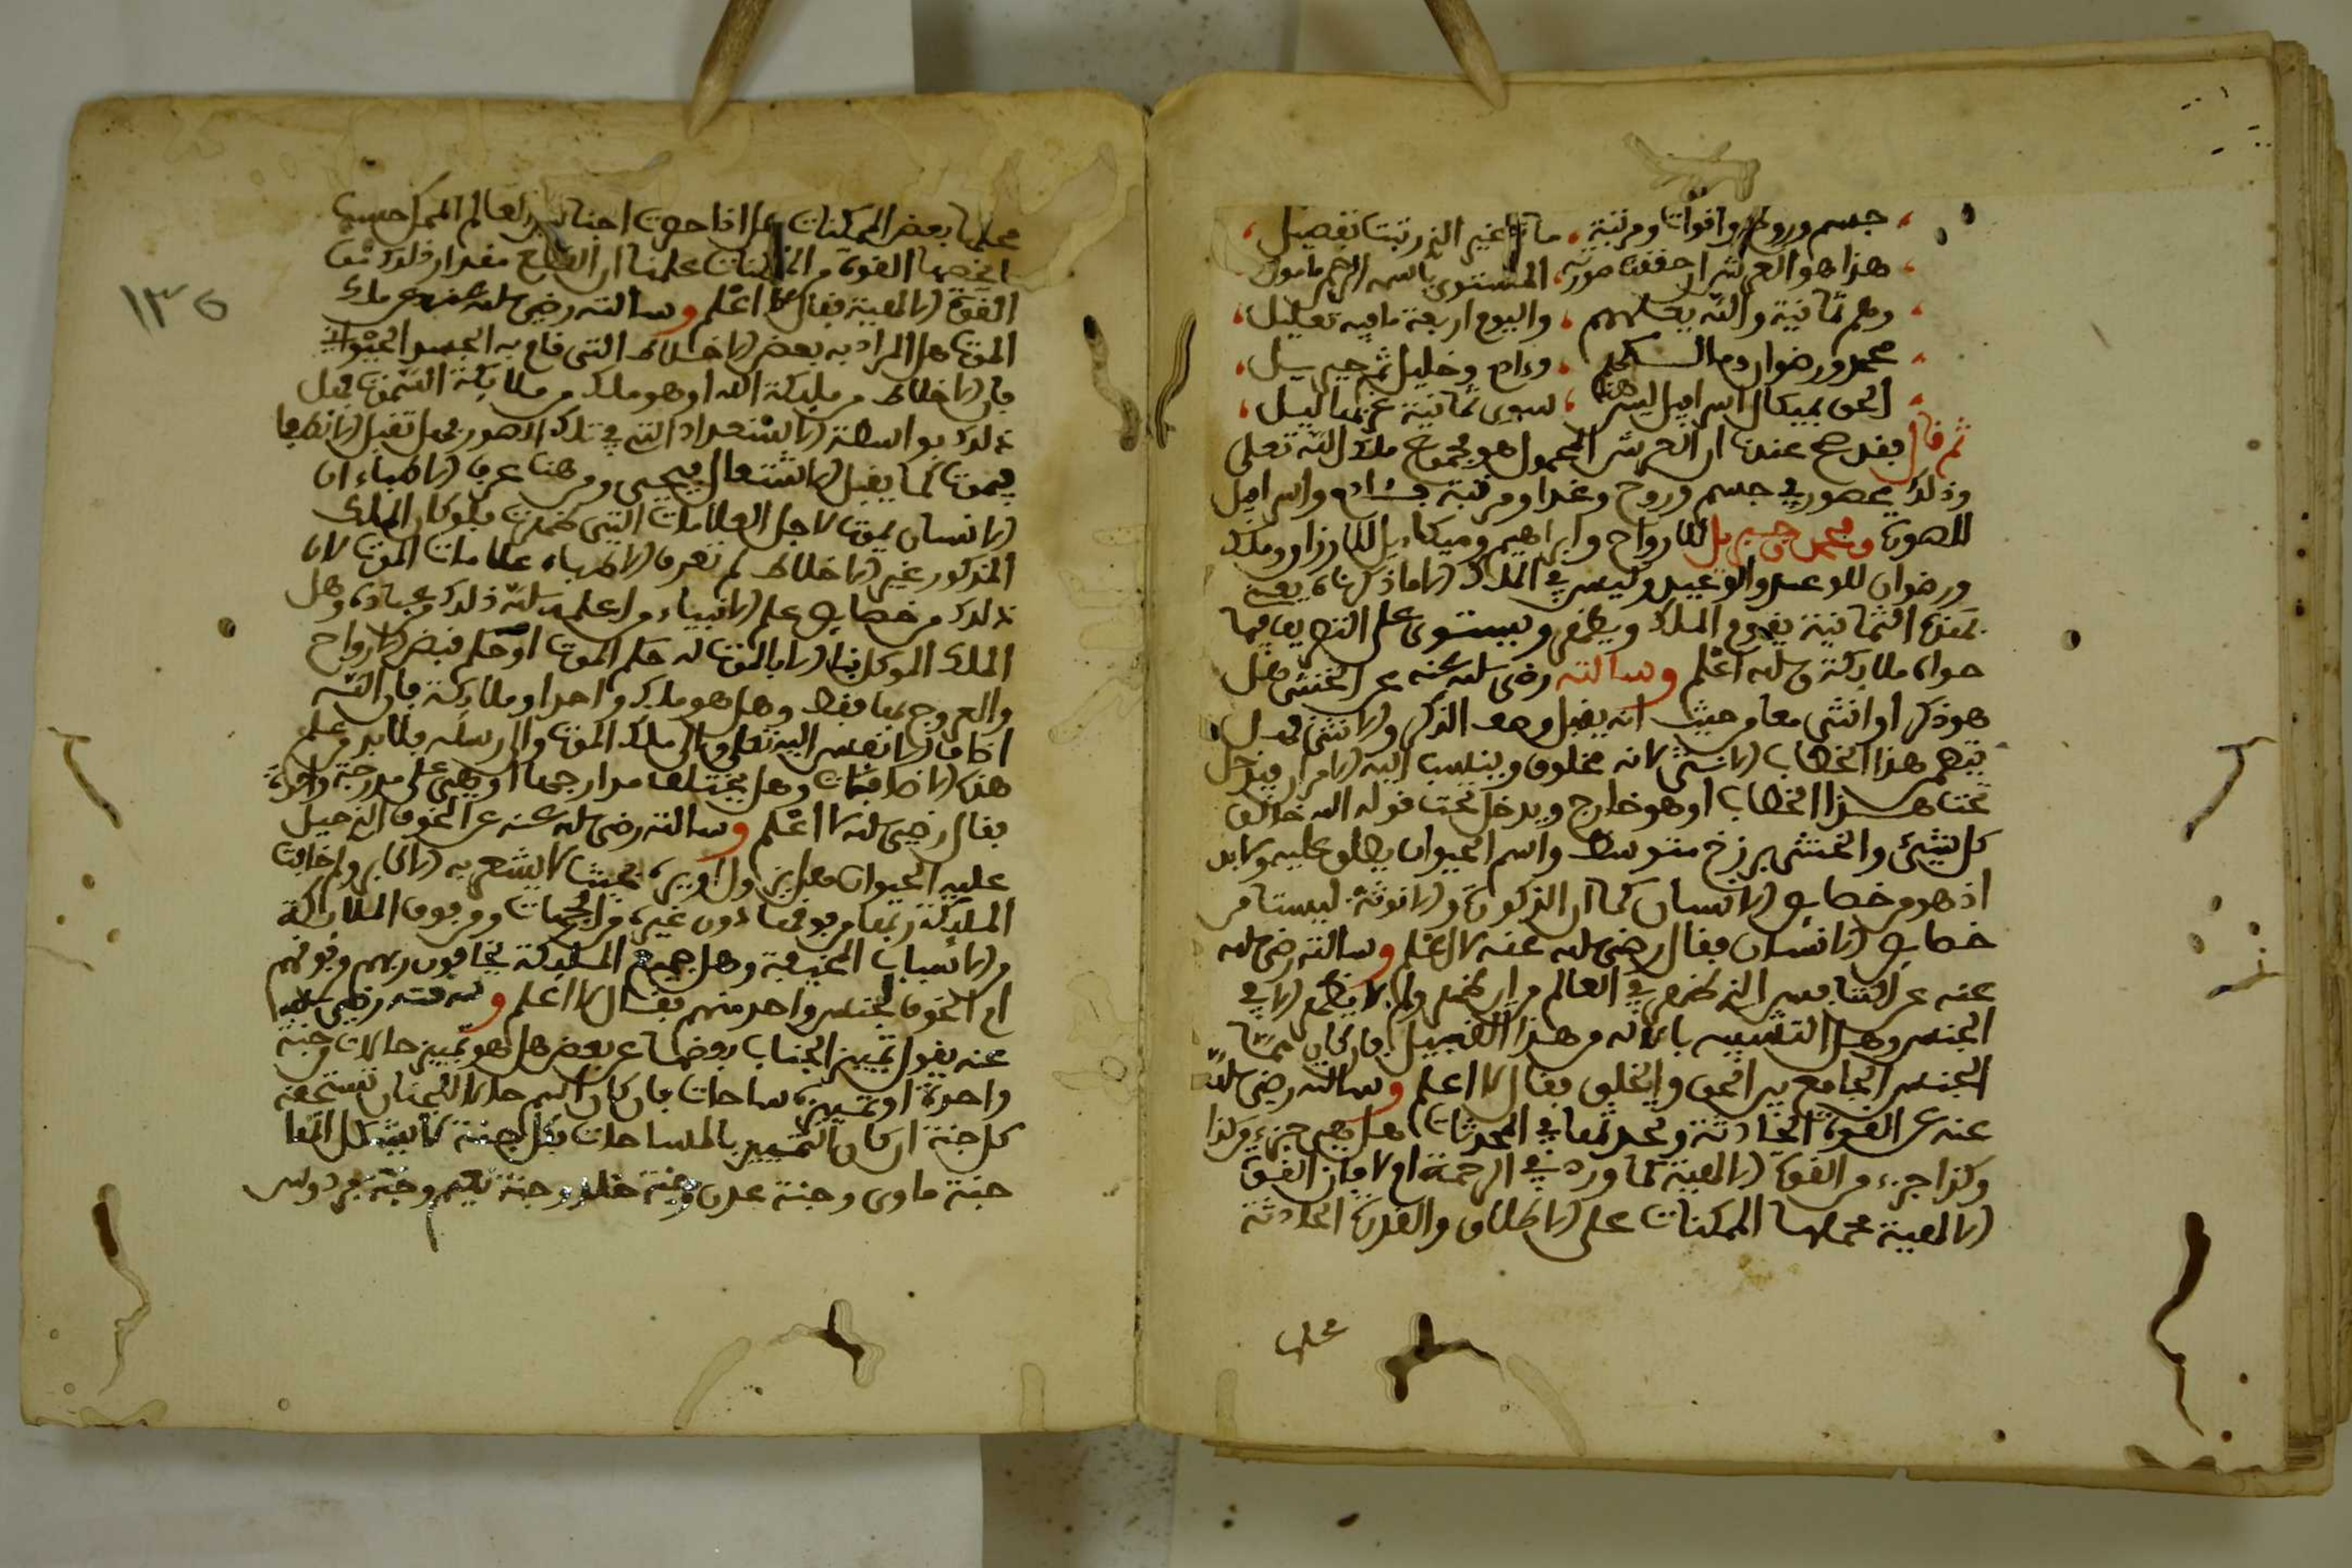 جسم وروح واقوات ومرتبة ما ثم غير الذي رتبت تفصيل
هذا هو العرش ان حققت صورته المستوي باسمه الرحمن مامول
وهم ثمانية والله يعلمهم واليوم اربعة ما فيه تعليل
محمد ورضوان ومالكهم وءادم وخليل ثم جبريل
الحق بميكال اسرافيل ليس هنا سوى ثمانية غر بهاليل
ثم قال فقد صح عندنا ان العرش المحمول هو مجموع ملك الله تعلى
وذلك محصور في جسم وروح وغذا ومرتبة فـادم واسرافيل
للصور ومحمد وجبريل للارواح وابراهيم وميكاءيل للارزاق ومالك
ورضوان للوعد والوعيد وليس في الملك الا ما ذكرناه يعني
بهذه الثمانية يقوم الملك ويظهر ويستوي على التصريف فيها
حواه ملائكة والله اعلم وسالته رضي الله عنه عن الخنثى هل
هو ذكر او انثى معا من حيث انه يقبل وصف الذكر والانثى فهل
يتهم هذا الخطاب الانثى لانه مخلوق وينسب اليه الامران فيدخل
تحت هذا الخطاب او هو خارج ويدخل تحت قوله الله خالق
كل شيء والخنثى برزخ متوسط واسم الحيوان يطلق عليه ولابد
اذ هو من خصايص الانسان كما ان الذكورة والانوثة ليستا من
خصايص الانسان فقال رضي الله عنه لا اعلم وسالته رضي الله
عنه عن التنافس الذي ظهر في العالم من اين ظهر ولم لا يظهر الا في
الجنس وهل التشبيه بالاله من هذا القبيل فان كان فما
الجنس الجامع بين الحق والخلق فقال لا اعلم وسالته رضي الله
عنه عن القوة الحادثة ومحدثها في المحدثات هل هي جزء من كذا
وكذا جزء من القوة الالهية كما ورد في الرحمة ام لا فان القوة
الالهية محملها الممكنات على الاطلاق والقدرة الحادثة
محلها
١٣٥
محلها بعض الممكنات
القوة الالهية فقال لا اعلم وسالته رضي الله عنه عن ملك
الموت هل المراد به بعض الاخلاط التي قام به الجسم الحيواني
فان الاخلاط من مليكة الله او هو ملك من ملايكة السموت يفعل
ذلك بواسطة الاستعداد التي في تلك الصور فهل تقبل الانطفا
فيموت كما يقبل الاشتعال فيحيى ومن هنا عرف الاطباء ان
الانسان يموت لاجل العلامات التي ظهرت فلو كان الملك
المذكور غير الاخلاط لم تعرف الاطباء علامات الموت لان
ذلك من خصايص علم الانبياء ومن اعلمه الله ذلك من عباده وهل
الملك الموكل بنا الا بالموت له حكم الموت او حكم قبض الارواح
والعروج بها فقط وهل هو ملك واحد او ملائكة فان الله
اضاف الانفس اليه تعلى والى ملك الموت والى رسله فلابد من علم
هذه الاضافات وهل يختلف مدارجها او هي على مدرجة واحدة
فقال رضي الله لا اعلم وسالته رضي الله عنه عن الخوف الذي جبل
عليه الحيوان
المليكة ربها من فوقها دون غيره من الجهات وفوق الملائكة
والاسباب المخيفة وهل جميع المليكة يخافون ربهم من فوقهم
ام الخوف لجنس واحد منهم فقال لا اعلم وسمعته رضي الله
عنه يقول تمييز الجنات بعضها عن بعض هل هو تمييز حالات في جنة
واحدة او تمييز ساحات فان كان اسم حالا للجنان تستحقه
كل جنة ان كان التمييز بالمساحات فكل جنة
جنة ماوى وجنة عدن وجنة خلد وجنة نعيم وجنة فردوس